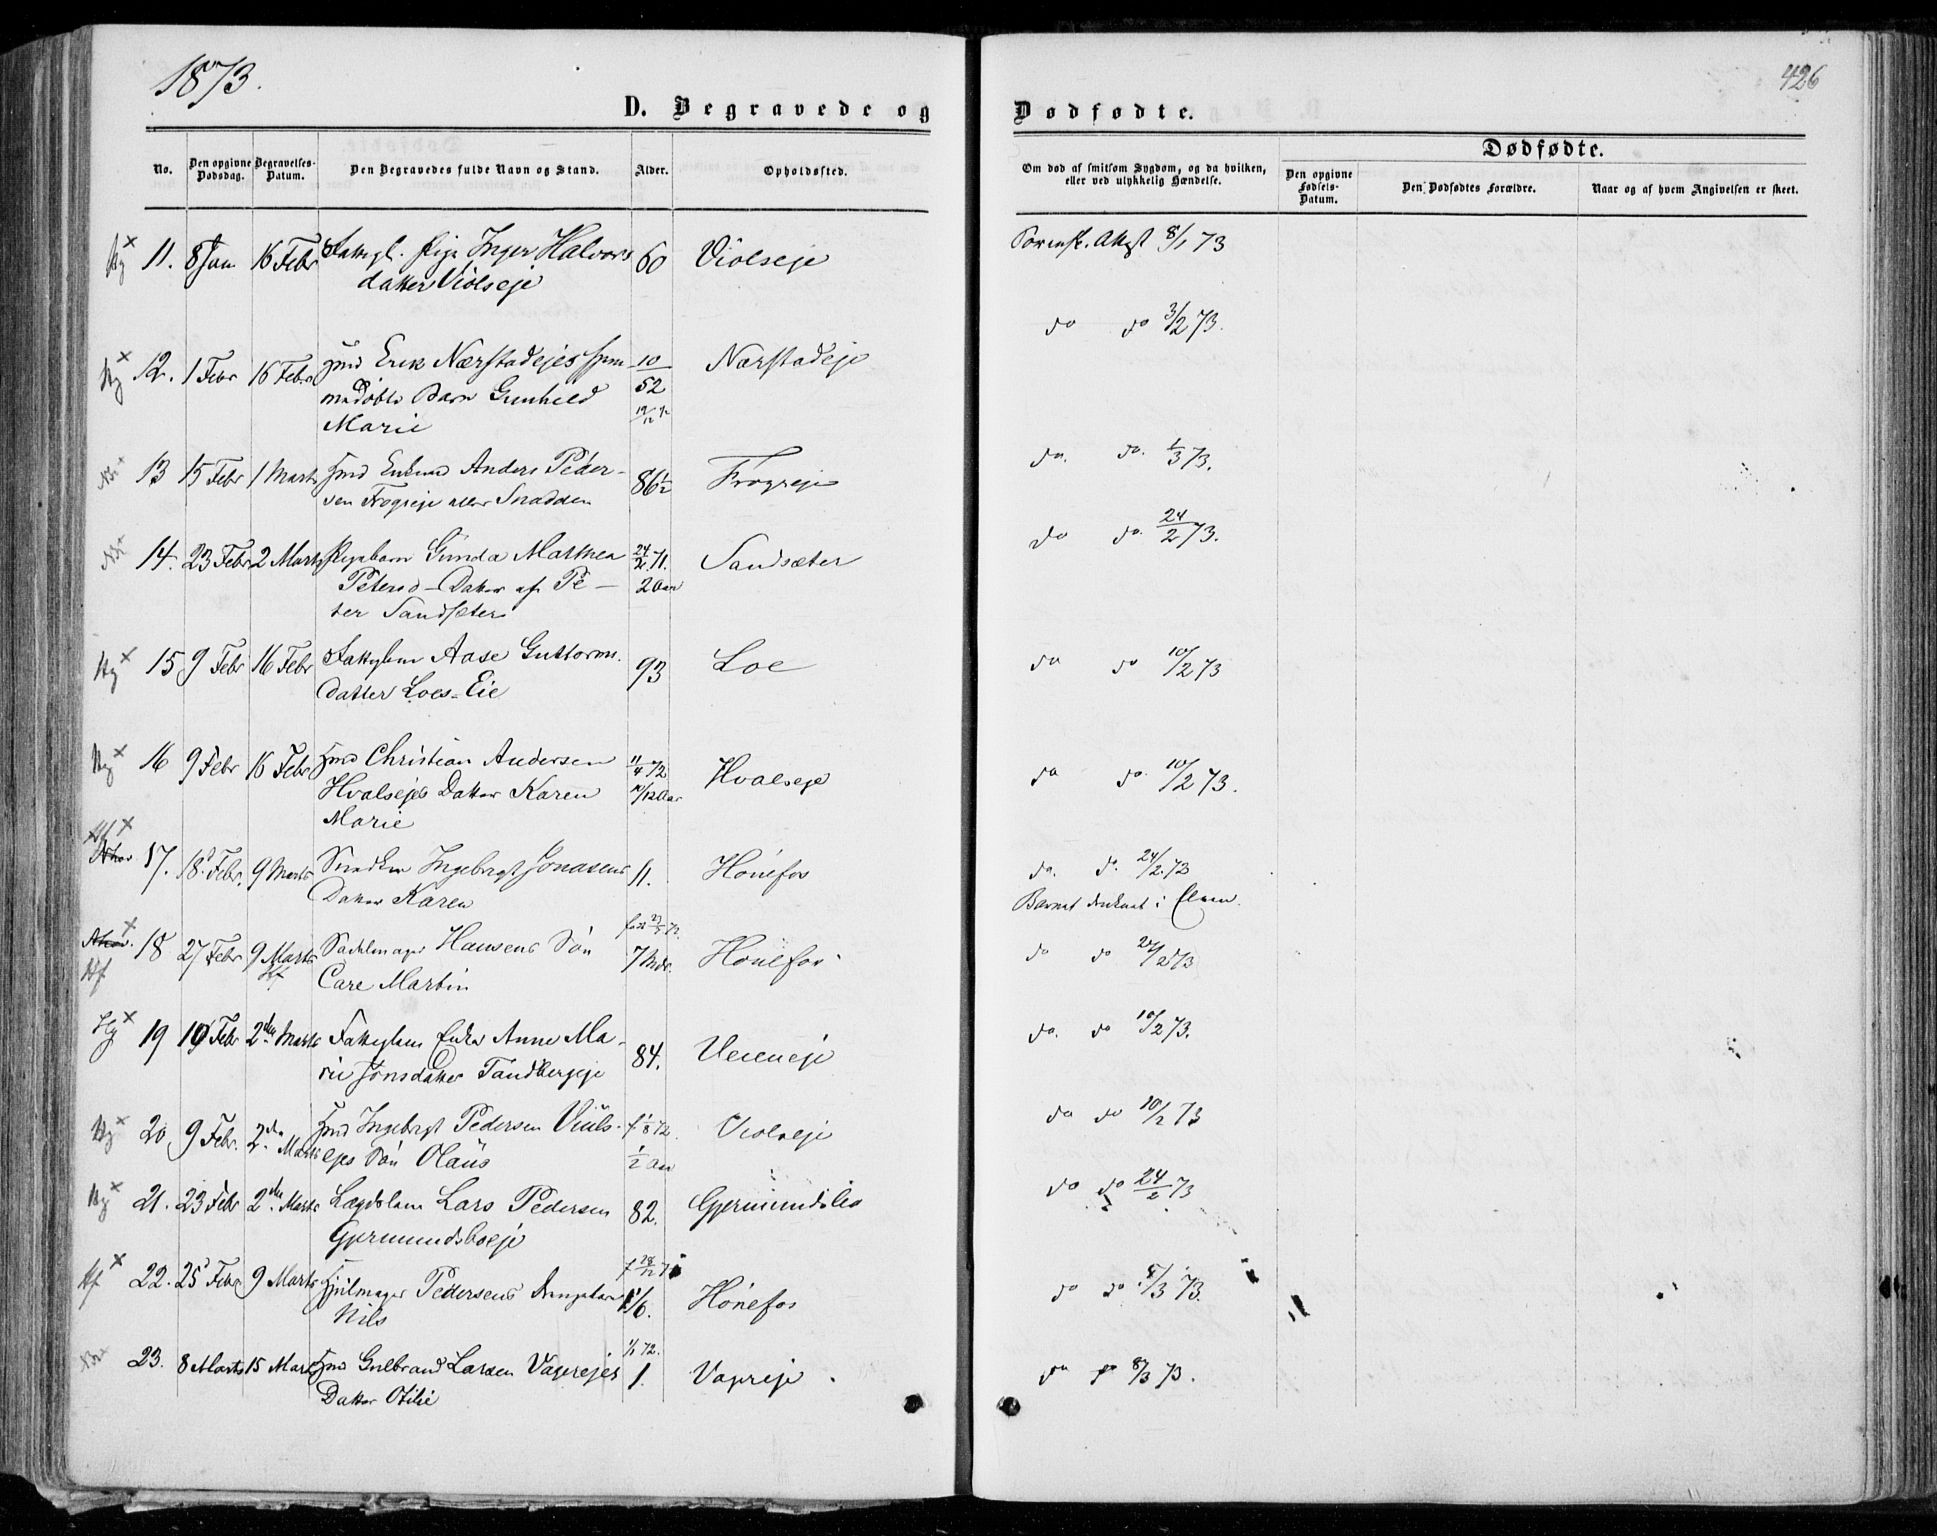 1873.
426
D. Begravede og Dødfødte.
No.
Den opgivne Dødsdag.
Begravelses-Datum.
Den Begravedes fulde Navn og Stand.
Alder.
Opholdssted.
Om død af smitsom Sygdom, og da hvilken,
eller ved ulykkelig Hændelse.
Dødfødte.
Den opgivne Fødsels-Datum.
Den Dødfødtes Forældre.
Naar og af hvem Angivelsen er skeet.
11. 8 Jan 16 Febr Fattigl. Pige Inger Halvors 60 Violseje 8/1 73
datter Violseje
12. 1 Febr 16 Febr Hmd Erik Nærstadejes 10/52 Nærstadeje do do 3/2 73.
Barn Gunhild
Marie
13 15 Febr 1 Marts Hmd Anders Peder- 86 1/2 Frogeje do. do. 1/3 73.
sen Frogeje eller Snadden
14. 23 Febr 2 Marts Pigebarn Gunda Mathea 24/2 71. Sandsæter do do. 24/2 73.
Petersd - Datter af Pe- 2 Aar
ter Sandsæter
15 9 Febr 16 Febr Fattiglem Aase Guttorms. 93 Loe do do 10/2 73
datter Loes-Eie
16 9 Febr 16 Febr Hmd Christian Andersen 11/4 72 Hvalseje do do. 10/2 73.
Hvalsejes Datter Karen 10/12 Aar
Marie
17. 18. Febr. 9 Marts Snedker Ingebregt Jonasens 11. Hönefos do. do. 24/2 73
Datter Karen Barnet druknet i Elven.
18 27 Febr 9 Marts Sadelmager Hansens Sön 7 Mdr. Hönefos do do
Hf Care Martin
Hg 19 Febr 2den Marts Fattiglem Enke Anne Ma- 84. Veieneje do. do 10/2 73.
rie Jonsdatter Tandbergeje
20 9 Febr. 2den Marts Hmd Ingebregt Pedersen Viuls- f 1/8 72. Violseje do do 10/2 73
ejes Sön Olaus 1/2 Aar
21. 23 Febr 2den Marts Lægdslem Lars Pedersen 82. Gjermundsbo do do 24/2 73
Gjermundsboeje
Hf 22. 25 Febr 9 Marts Hjulmager Pedersens Drengebarn Hönefos do do 8/3 73.
Nils
23. 8 Marts 15 Marts Hmd Gulbrand Larsen Vagerejes 1. Vagreje do do 8/3 73.
Datter Otilie